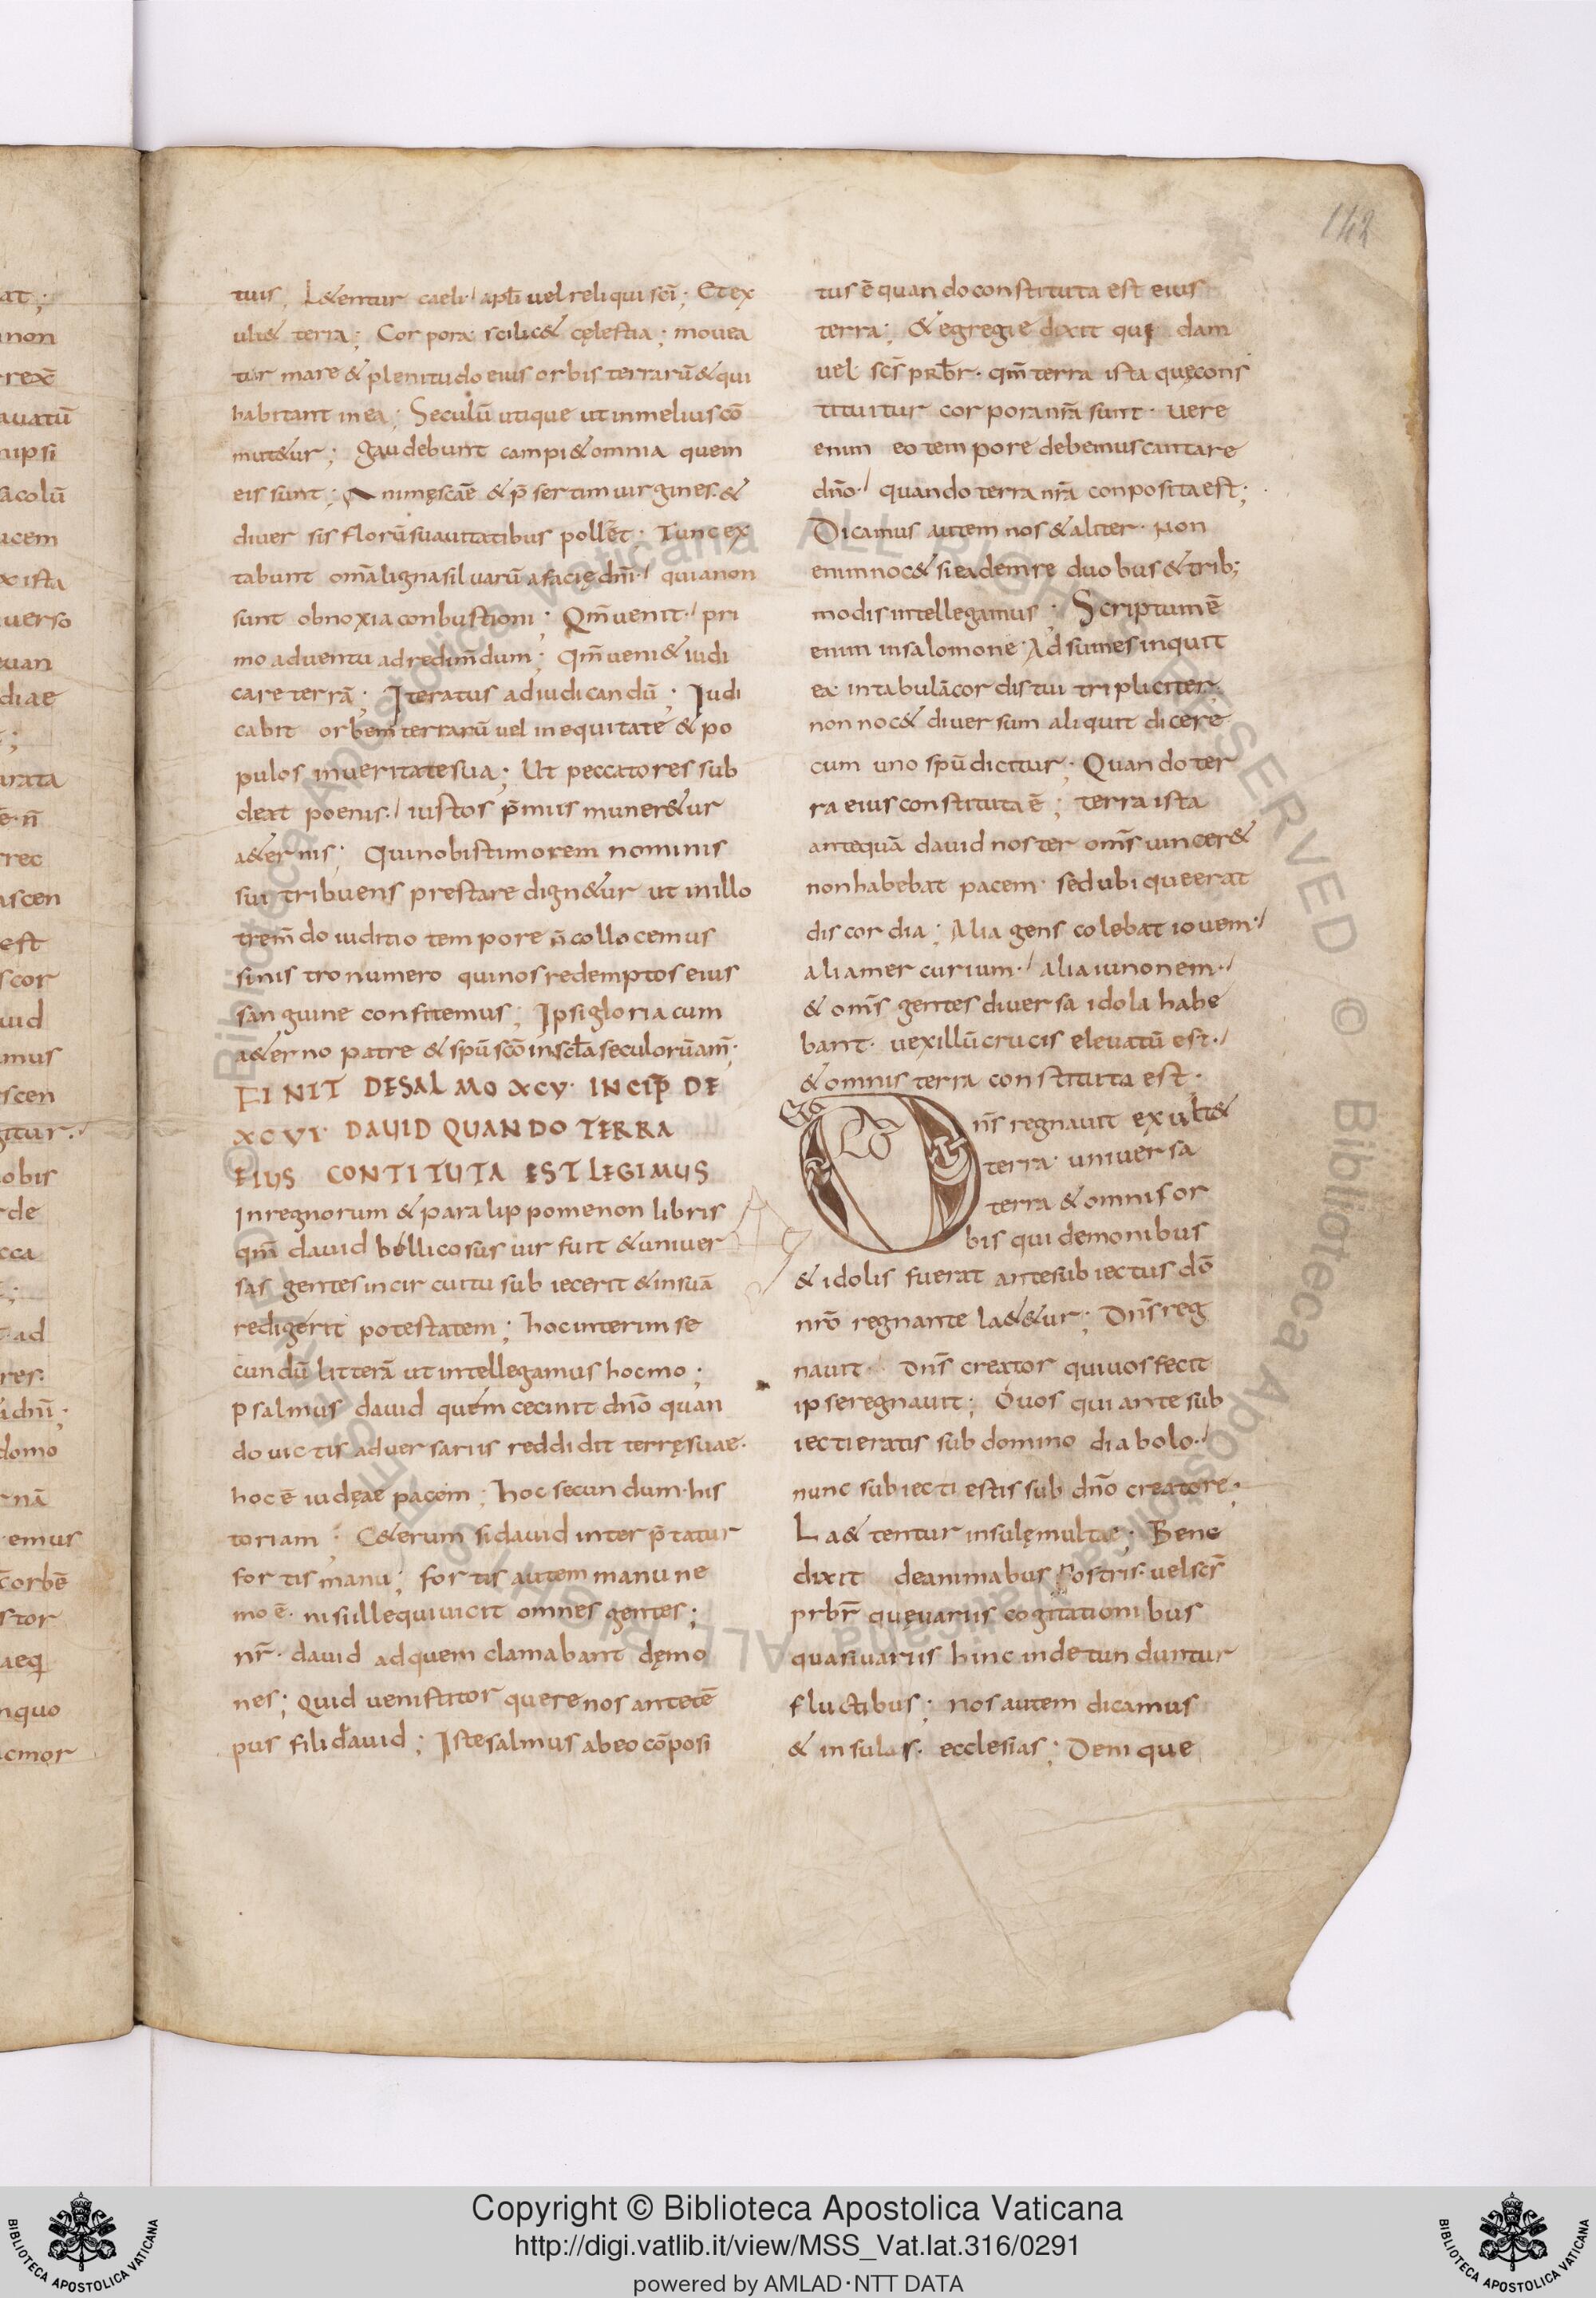 142
tuis. L&entur caeli·/ apłi uel reliqui scī; Et ex
uli& terra; Corpora scilic& cęlestia; mouea
tur mare & plenitudo eius orbis terrarū & qui
habitant in ea; Seculū utique ut in melius cō
mut&ur; gaudebunt campi & omnia quem
eis sunt; Animęscāe & p̄sertim uirgines. &
diuersis florū suauitatibus pollēt. Tunc ex
tabunt omā ligna siluarū a facię dn̄i·/ quia non
sunt obnoxia conbustioni; Qm̄ uenit·/ pri
mo aduentu ad redim̄dum; Qm̄ ueni& iudi
care terrā; Iteratus ad iudicandū; Iudi
cabit orbem terrarū uel in equitate & po
pulos in ueritate sua; Ut peccatores sub
deat poenis·/ iustos p̄mus muner&ur
a&ernis; Qui nobis timorem nominis
sui tribuens prestare dign&ur ut in illo
trem̄do iuditio tempore n̄ collocemus
sinistro numero qui nos redemptos eius
sanguine confitemus; Ipsi gloria cum
a&erno patre & spū scō in scła seculorū am̄.
FINIT DE SALMO XCV· INCIP̄ DE
XCVI· DAUID QUANDO TERRA
EIUS CONTITUTA EST LEGIMUS
In regnorum & paralippomenon libris
qm̄ dauid bellicosus uir fuit & uniuer
sas gentes in circuitu subiecerit & in suā
redigerit potestatem; hoc interim se
cundū litterā ut intellegamus hoc mo;
psalmus dauid quem cecinit dn̄o quan
do uictis aduersariis reddidit terrę suae.
hoc ē iudęae pacem; hoc secundum his
toriam; C&erum si dauid interp̄tatur
fortis manu; fortis autem manu ne
mo ē· nisi ille qui uicit omnes gentes;
nr̄· dauid ad quem clamabant dęmo
nes; quid uenisti torquere nos ante tē
pus fili dauid; Iste salmus ab eo cōposi
tus ē quando constituta est eius
terra; & egregie dixit qui dam
uel sc̄s prb̄r· qm̄ terra ista quę cons
tituitur corpora nr̄a sunt· uere
enim eo tempore debemus cantare
dn̄o·/ quando terra nr̄a conposita est;
Dicamus autem nos & aliter· Non
enim noc& si eadem re duobus & trib;
modis intellegamus; Scriptum ē
enim in salomone· Adsumes inquit
ea in tabulā cordis tui tripliciter·
non noc& diuersum aliquit dicere
cum uno spū dicitur; Quando ter
ra eius constituta ē; terra ista
antequā dauid noster om̄s uincer&
non habebat pacem· sed ubique erat
discordia; Alia gens colebat iouem·/
alia mercurium·/ alia iunonem·/
& om̄s gentes diuersa idola habe
bant· uexillū crucis eleuatū est·/
& omnis terra constituta est·
Dn̄s regnauit exult&
terra· uniuersa
terra & omnis or
bis qui demonibus
& idolis fuerat ante subiectus dō
nr̄o regnante la&&ur; Dn̄s reg
nauit· Dn̄s creator qui uos fecit
ipse regnauit; O uos qui ante sub
iecti eratis sub domino diabolo·/
nunc subiecti estis sub dn̄o creatore;
La&tentur insulę multae; Bene
dixit de animabus nostris· uel sc̄s
prbr̄ quę uariis cogitationibus
quasi uariis hinc inde tunduntur
fluctibus; nos autem dicamus
& insulas· ecclesias; Denique
Copyright © Biblioteca Apostolica Vaticana
http://digi.vatlib.it/view/MSS_Vat.lat.316/0291
powered by AMLAD·NTT DATA